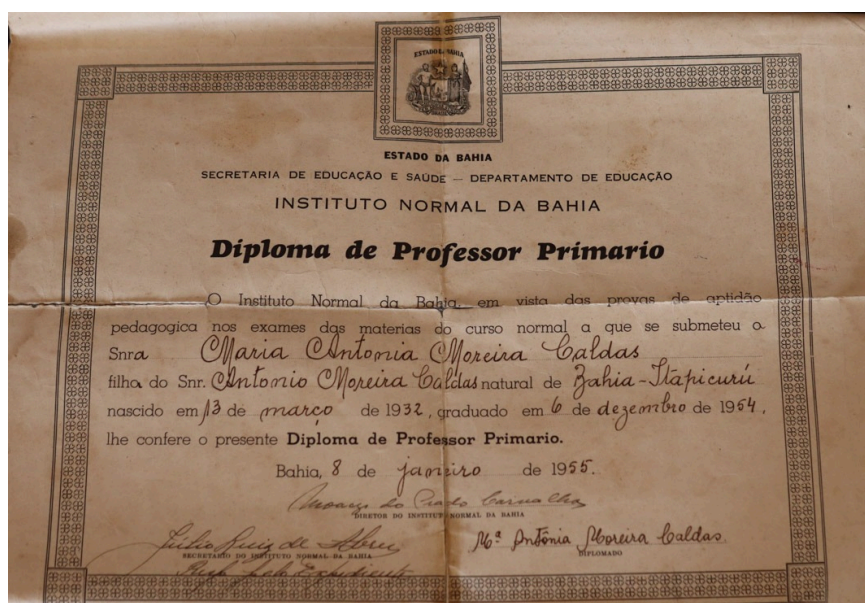 ESTADO DA BAHIA
ESTADO DA BAHIA
SECRETARIA DE EDUCAÇÃO E SAÚDE — DEPARTAMENTO DE EDUCAÇÃO
INSTITUTO NORMAL DA BAHIA
Diploma de Professor Primario
O Instituto Normal da Bahia, em vista das provas de aptidão
pedagogica nos exames das materias do curso normal a que se submeteu a
Snra Maria Antonia Moreira Caldas
filha do Snr. Antonio Moreira Caldas natural de Bahia-Itapicurú
nascido em 13 de março de 1932, graduado em 6 de dezembro de 1954,
lhe confere o presente Diploma de Professor Primario.
Bahia, 8 de janeiro de 1955.
do Prado Carvalho
DIRETOR DO INSTITUTO NORMAL DA BAHIA
de Abreu
Mª Antônia Moreira Caldas
SECRETARIO DO INSTITUTO NORMAL DA BAHIA
DIPLOMADO